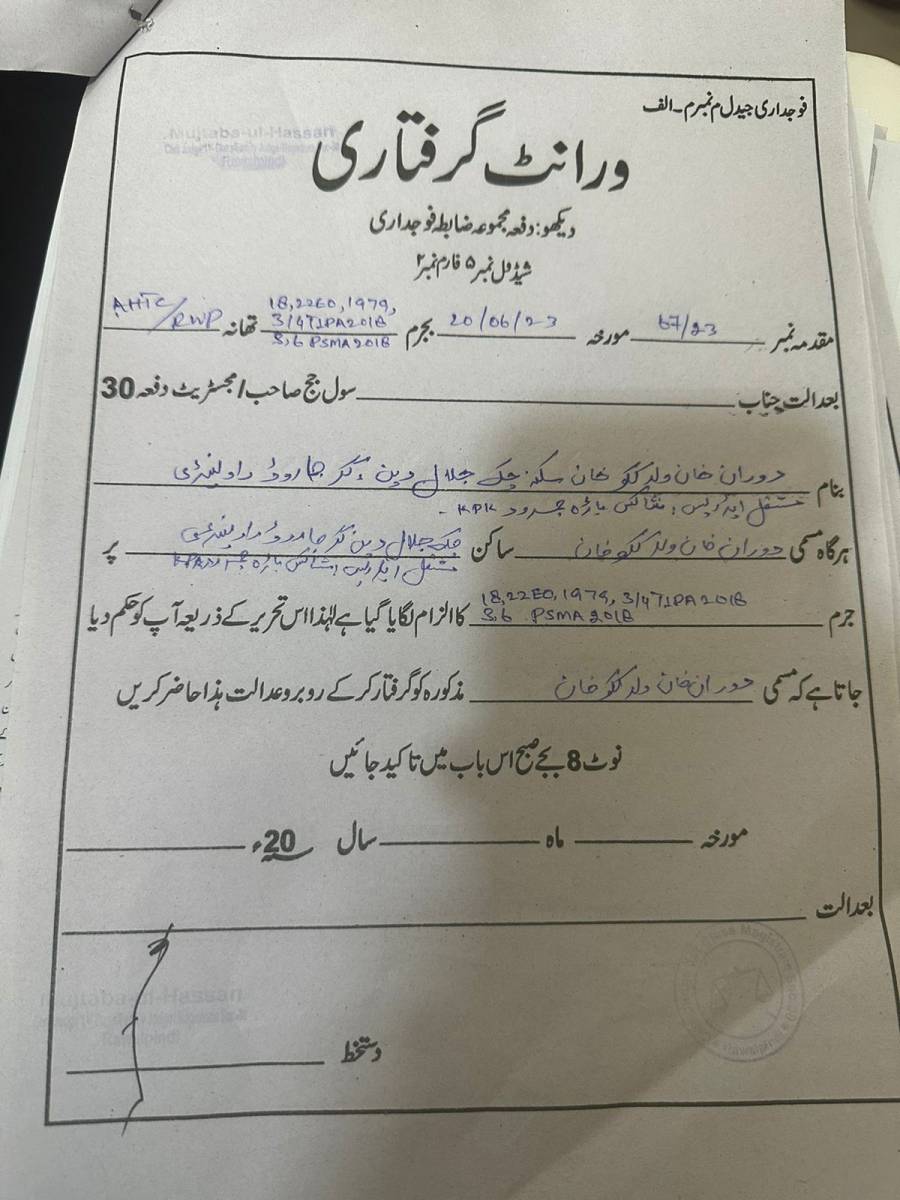 فوجداری جیدل م نمبرم۔الف
Mujtaba-ul-Hassan
Rawalpindi
ورانٹ گرفتاری
دیکھو: دفعہ مجموعہ ضابطہ فوجداری
شیڈول نمبر ۵ فارم نمبر ۲
مقدمہ نمبر 67/23 مورخہ 20/06/23 بجرم 18,22EO,1979, 3/4TIPA2018 3,6 PSMA2018 تھانہ AHTC/RWP
بعدالت جناب سول جج صاحب/مجسٹریٹ دفعہ 30
بنام دوران خان ولد ککو خان سکنہ چک جلال دین، گرجا روڈ راولپنڈی
مستقل ایڈریس، باڑہ جمرود KPK-
ہرگاہ مسمی دوران خان ولد ککو خان ساکن چک جلال دین گرجا روڈ راولپنڈی پر
مستقل ایڈریس باڑہ
جرم 18,22EO,1979, 3/4TIPA2018 3,6 PSMA2018 کا الزام لگایا گیا ہے لہٰذا اس تحریر کے ذریعہ آپ کو حکم دیا
جاتا ہے کہ مسمی دوران خان ولد ککو خان مذکورہ کو گرفتار کر کے روبرو عدالت ہذا حاضر کریں
نوٹ 8 بجے صبح اس باب میں تاکید جائیں
مورخہ ماہ سال 20ء
بعدالت
Mujtaba-ul-Hassan
Rawalpindi
دستخط